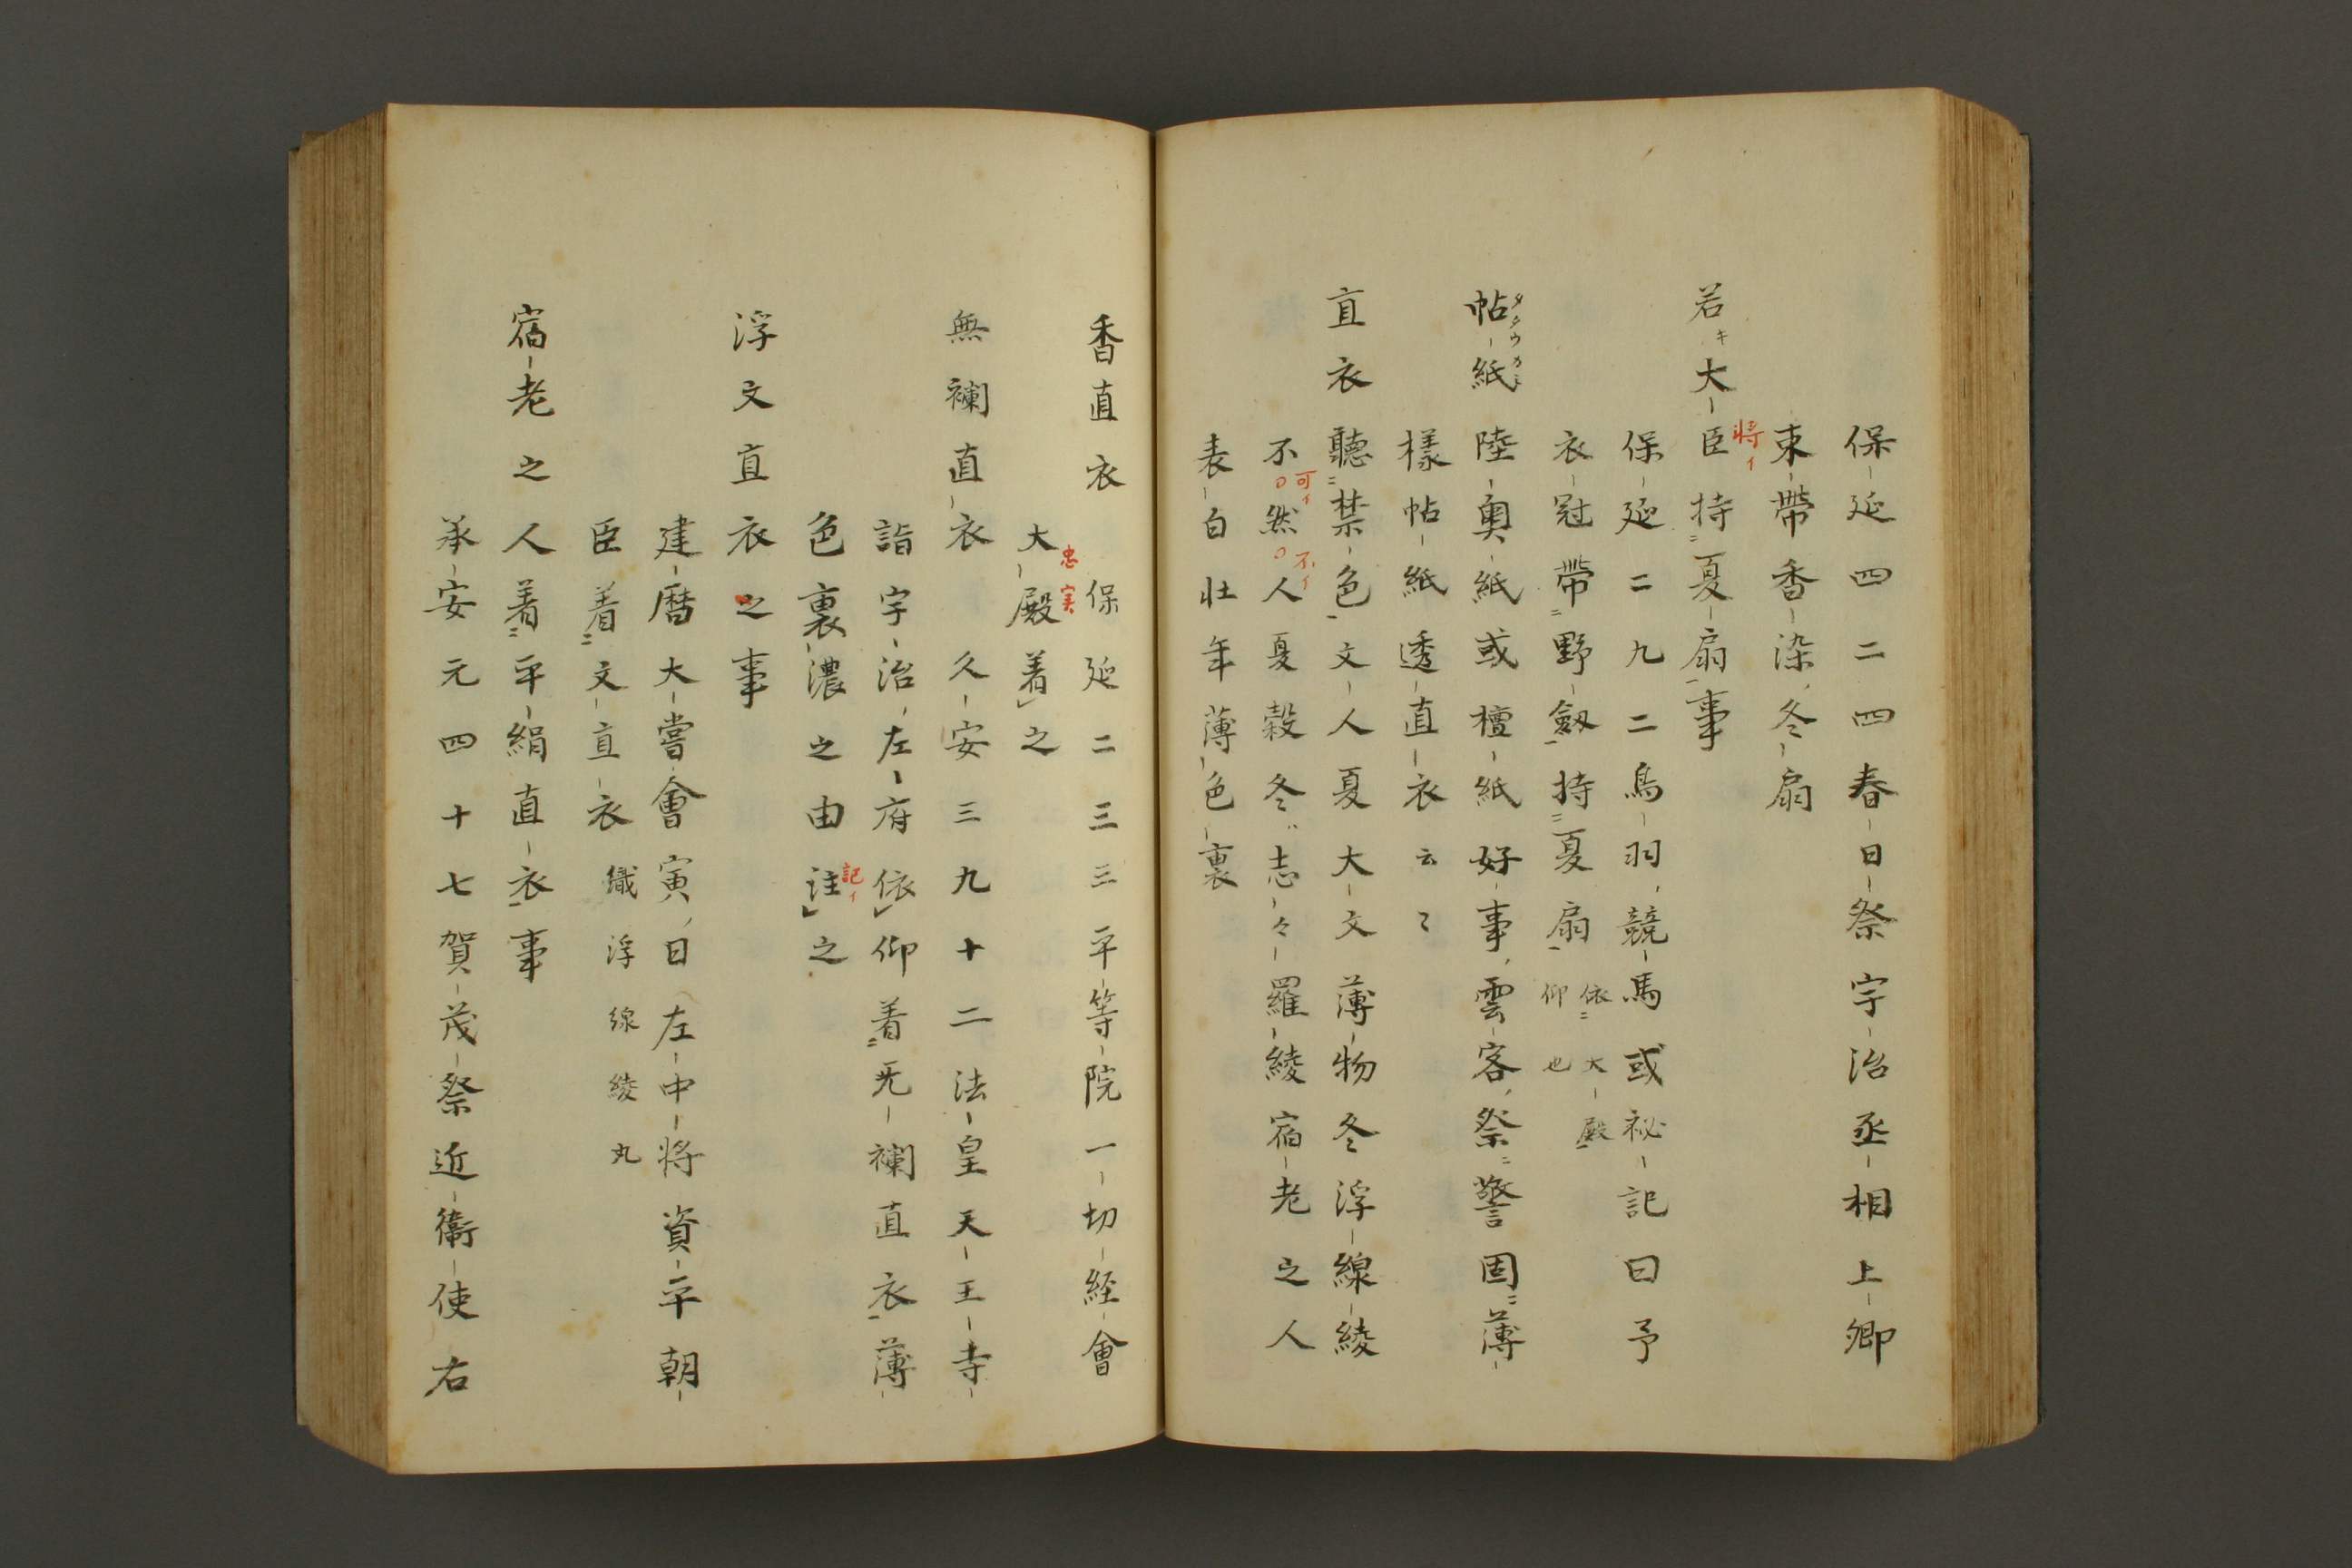 保延四二四春日祭宇治丞相上卿
束帶香染冬扇
若キ大臣持夏扇事
將イ
保延二九二鳥羽競馬或祕記曰予
衣冠帶野劔持夏扇依大殿仰也
帖紙陸奧紙或檀紙好事雲客祭警固薄
タヽウカミ
樣帖紙透直衣云〻
直衣聽禁色文人夏大文薄物冬浮線綾
不然人夏穀冬志々羅綾宿老之人
可イ
不イ
表白壮年薄色裏
香直衣
保延二三三平等院一切経會
大殿着之
忠実
無襴直衣久安三九十二法皇天王寺
詣宇治左府依仰着无襴直衣薄
色裏濃之由註之
記イ
浮文直衣之事
建暦大嘗會寅日左中将資平朝
臣着文直衣織浮線綾丸
宿老之人着平絹直衣事
承安元四十七賀茂祭近衞使右